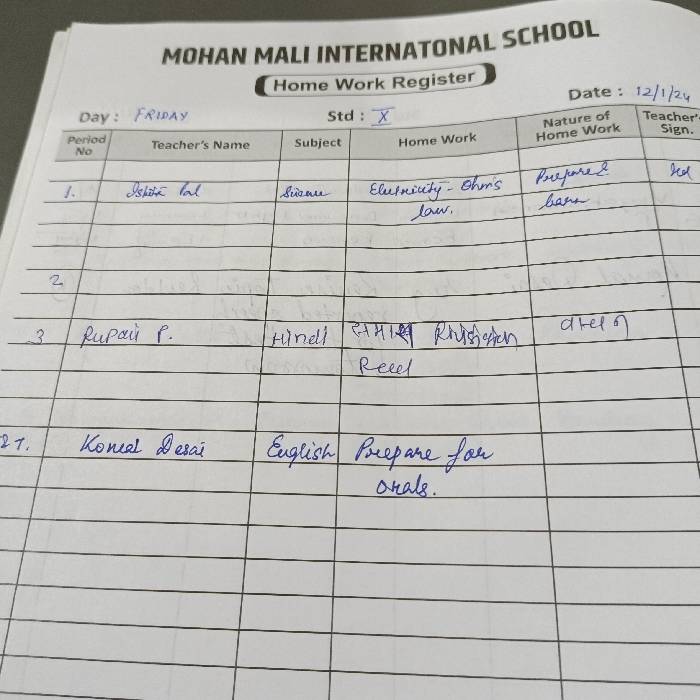 MOHAN MALI INTERNATONAL SCHOOL
Home Work Register
Date : 12/1/24
Day : FRIDAY Std : X
Period No Teacher's Name Subject Home Work Nature of Home Work Teacher's Sign.
1. Ishita Pal Science Electricity - Ohm's Prepare &
law. learn
2
3 Rupali P. Hindi
Read
Komal Desai English Prepare for
orals.